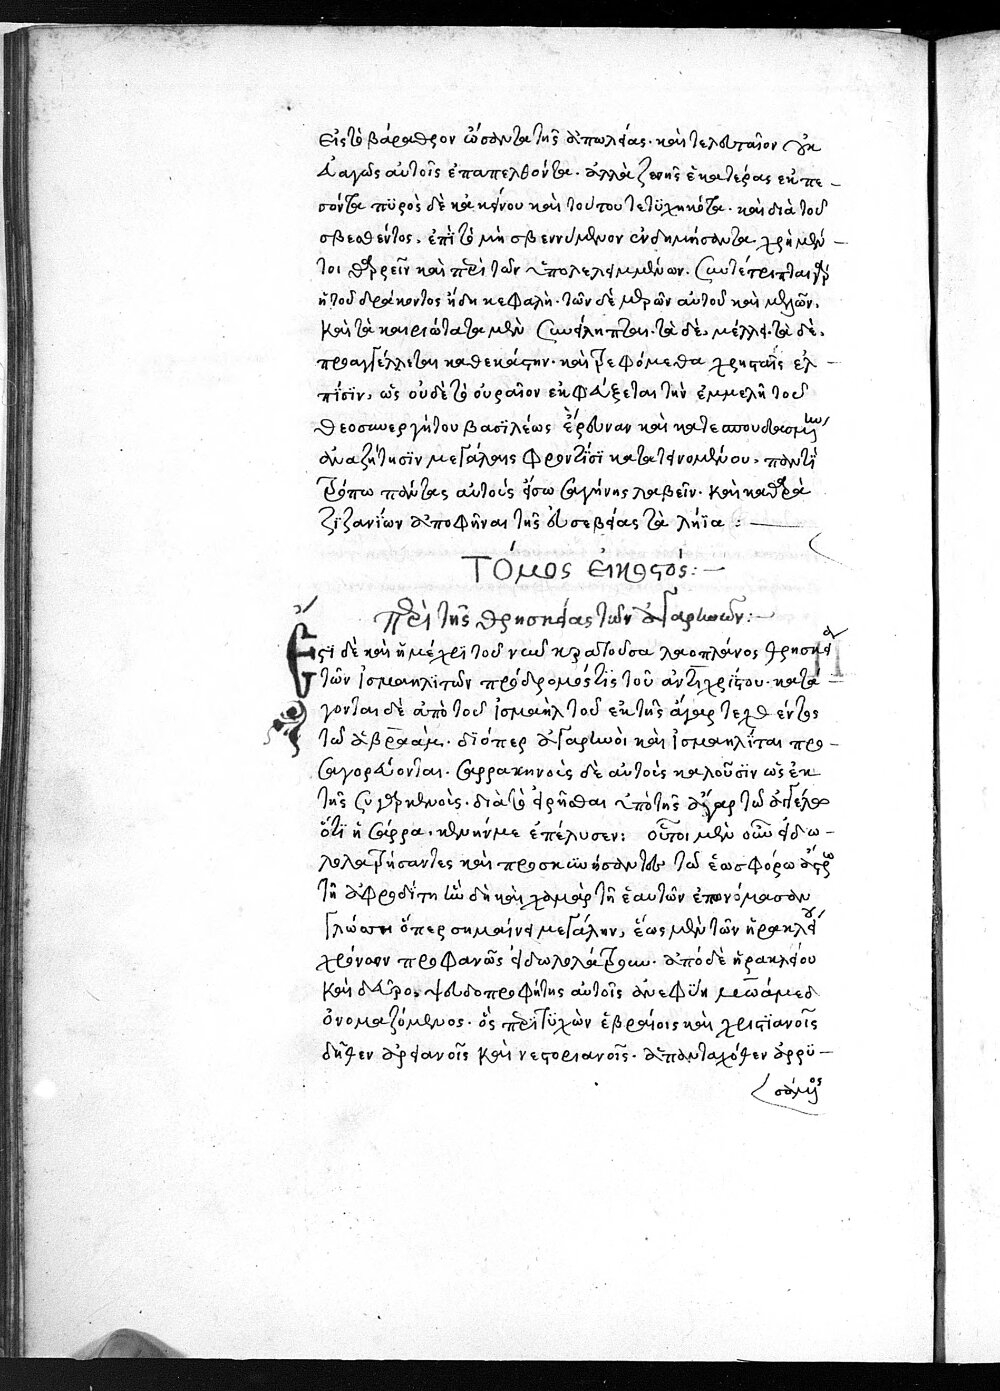 εἰς τὸ βάραθρον ὤσαντα τῆς ἀπωλείας· καὶ τελευταῖον οὐκ
εὐαγῶς αὐτοῖς ἐπαπελθόντα· ἀλλὰ ζωῆς ἑκατέρας ἐκπε-
σόντα πῦρός δὲ κἀκείνου καὶ τούτου τετυχηκότα· καὶ διὰ τοῦ
σβεσθέντος, ἐπὶ τὸ μὴ σβεννύμενον ἐνδημήσαντα χρὴ μέν-
τοι θαρρεῖν καὶ περὶ τῶν ὑπολελειμμένων. συντέτριπται γὰρ
ἡ τοῦ δράκοντος ἤδη κεφαλή· τῶν δὲ μερῶν αὐτοῦ καὶ μελῶν,
καὶ τὰ καιριώτατα μὲν συνείληπται· τὰ δὲ, μέλλει· τὰ δὲ,
προαγγέλλεται καθεκάστην· καὶ τρεφόμεθα χρησταῖς ἐλ-
πίσϊν, ὡς οὐδὲ τὸ οὐραῖον ἐκφεύξεται τὴν ἐμμελῆ τοῦ
θεοσυνεργήτου βασϊλέως ἔρευναν καὶ κατεσπουδασμένην
ἀναζήτησϊν μεγάλαις φροντίσϊ κατατεινομένου, παντὶ
τρόπω πάντας αὐτοὺς εἴσω σαγήνης λαβεῖν· καὶ καθαρὰ
ζϊζανίων ἀποφῆναι τῆς εὐσεβείας τὰ λήϊα :
Τόμος εἰκοστός:
περὶ τῆς θρησκείας τῶν ἀγαρηνῶν:
Ἔστϊ δὲ καὶ ἡ μέχρϊ τοῦ νῦν κρατοῦσα λαοπλάνος θρησκεία
τῶν ἰσμαηλιτῶν πρόδρομός τις τοῦ ἀντιχρίστου· κατά-
γονται δὲ ἀπὸ τοῦ ἰσμαὴλ τοῦ ἐκ τῆς ἄγαρ τεχθέντος
τῶ ἀβραάμ· δϊόπερ ἀγαρηνοὶ καὶ ἰσμαηλῖται προ-
σαγορεύονται. σαρρακηνοὺς δὲ αὐτοὺς καλοῦσϊν ὡς ἐκ
τῆς
ὅτϊ ἡ σάρρα, κενήν με ἐπέλυσεν: οὗτοι μὲν οὖν εἰδω-
λολατρήσαντες καὶ προσκυνήσαντες τῶ ἑωσφόρω ἄστρω
τῆ ἀφροδίτη ἣν δὴ καὶ χαμὰρ τῆ ἑαυτῶν ἐπονόμασαν
γλώσση ὅπερ σημαίνει μεγάλην, ἕως μὲν τῶν ἡρακλείου
χρόνων προφανῶς εἰδωλολάτρουν· ἀπὸ δὲ ἡρακλείου
καὶ δεῦρο, ψευδοπροφήτης αὐτοῖς ἀνεφΰη μωάμεδ
ὀνομαζόμενος· ὃς περιτϋχὼν ἑβραίοις καὶ χριστϊανοῖς
δῆθεν ἀρειανοῖς καὶ νεστοριανοῖς· ἀπανταχόθεν ἀρρϋ-
σάμενος